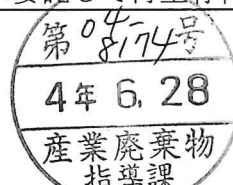 第04-8174号
4年6.28
産業廃棄物
指導課